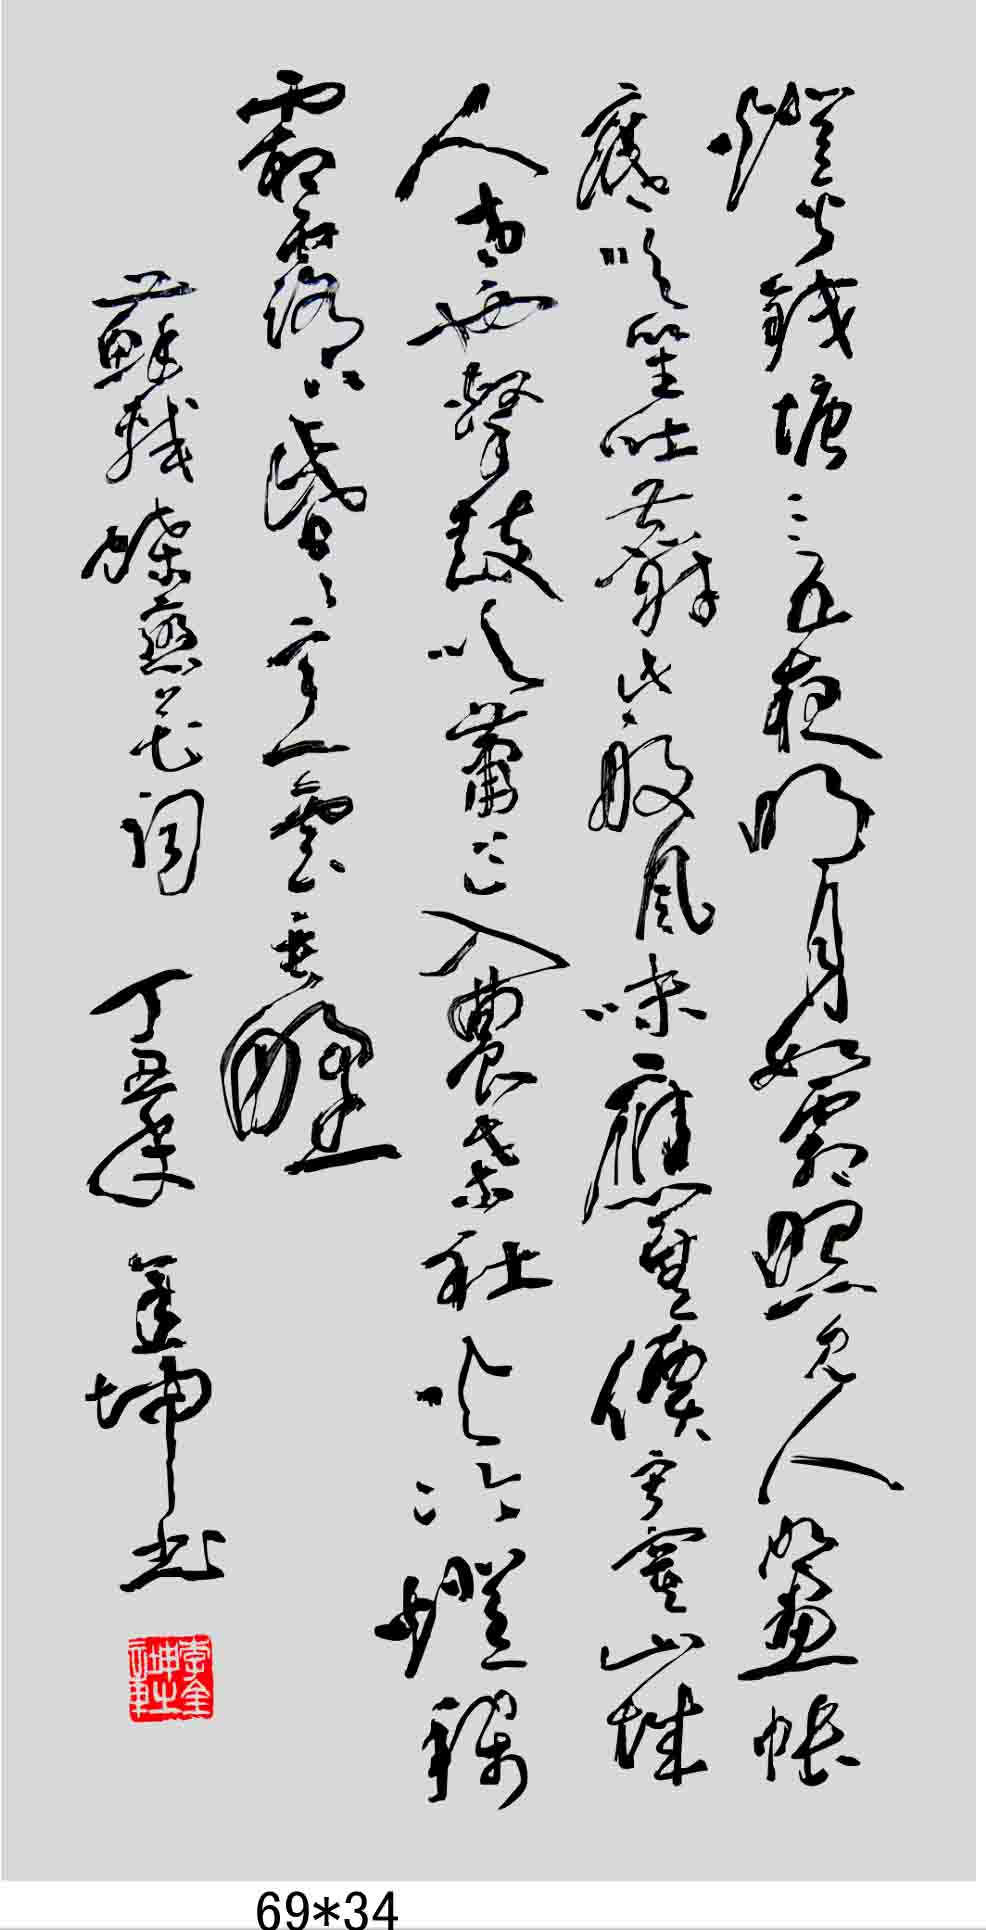 燈火錢塘三五夜明月如霜照見人如畫帳
底吹笙吐麝此般風味應無價寂寞山城
人老也擊鼓吹簫乍入農桑社火冷燈稀
霜露下昏昏雪意雲垂野
蘇軾蝶戀花詞 丁丑年 金坤書
69*34